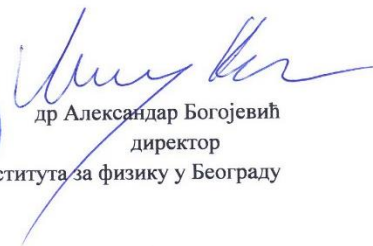 др Александар Богојевић
директор
ститута за физику у Београду